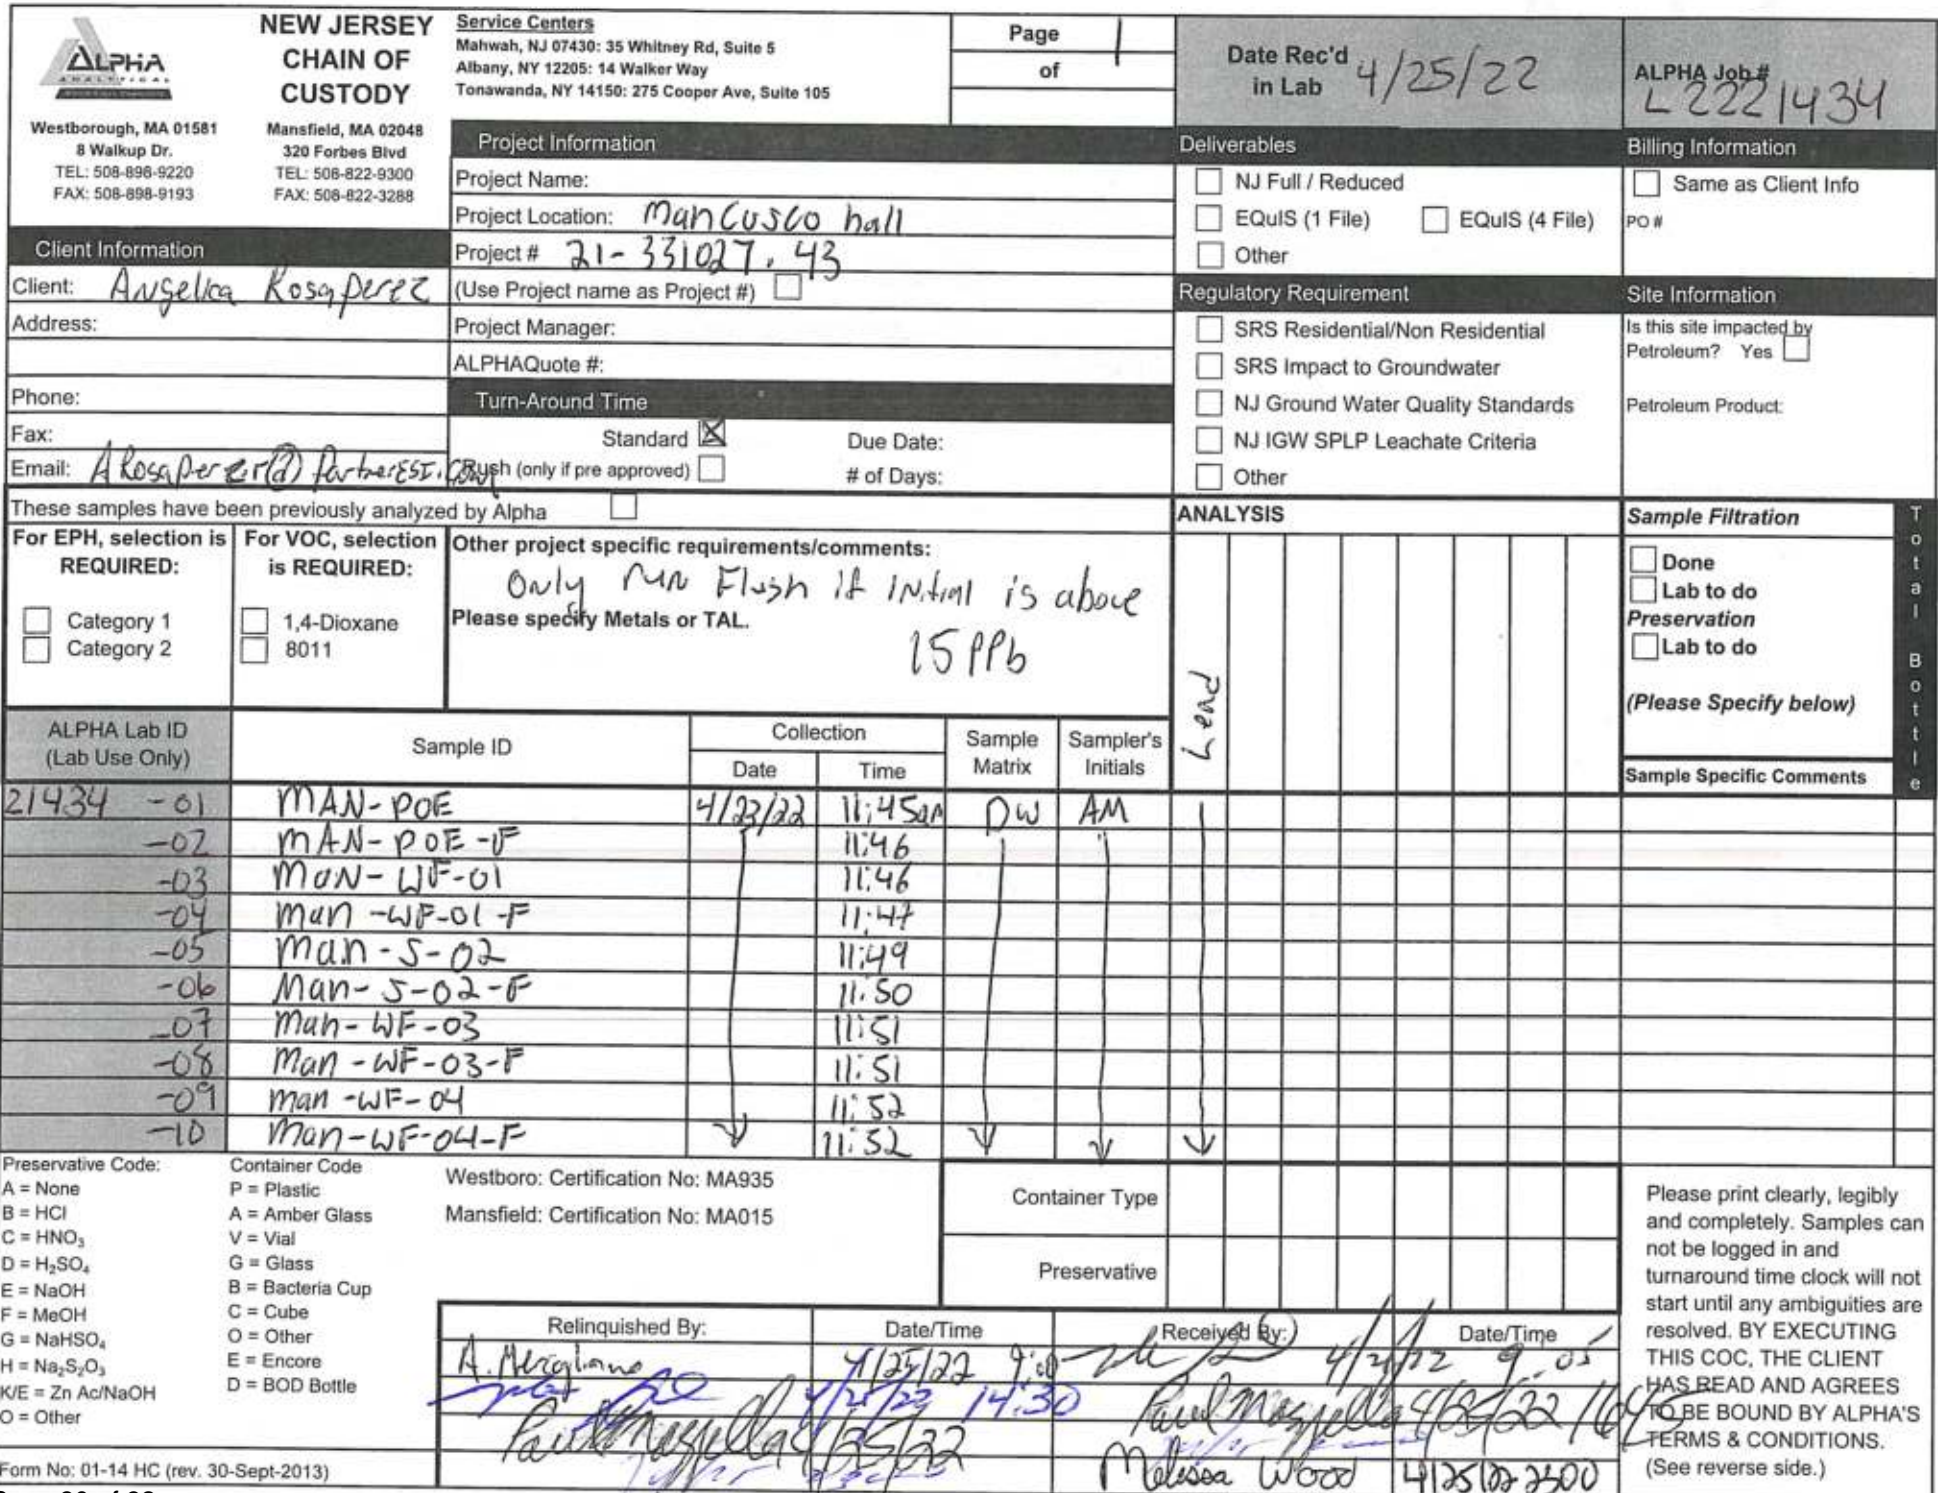 ALPHA
ANALYTICAL
NEW JERSEY
CHAIN OF
CUSTODY
Westborough, MA 01581
8 Walkup Dr.
TEL: 508-898-9220
FAX: 508-898-9193
Mansfield, MA 02048
320 Forbes Blvd
TEL: 508-822-9300
FAX: 508-822-3288
Service Centers
Mahwah, NJ 07430: 35 Whitney Rd, Suite 5
Albany, NY 12205: 14 Walker Way
Tonawanda, NY 14150: 275 Cooper Ave, Suite 105
Page 1
of
Date Rec'd
in Lab 4/25/22
ALPHA Job #
L2221434
Client Information
Client: Angelica Rosaperez
Address:
Phone:
Fax:
Email: ARosaperezr@PartnerESI.com
Project Information
Project Name:
Project Location: Mancusco hall
Project # 21-331027.43
(Use Project name as Project #)
Project Manager:
ALPHAQuote #:
Turn-Around Time
Standard X Due Date:
Rush (only if pre approved) # of Days:
Deliverables
NJ Full / Reduced
EQuIS (1 File) EQuIS (4 File)
Other
Regulatory Requirement
SRS Residential/Non Residential
SRS Impact to Groundwater
NJ Ground Water Quality Standards
NJ IGW SPLP Leachate Criteria
Other
Billing Information
Same as Client Info
PO #
Site Information
Is this site impacted by
Petroleum? Yes
Petroleum Product:
These samples have been previously analyzed by Alpha
For EPH, selection is
REQUIRED:
Category 1
Category 2
For VOC, selection
is REQUIRED:
1,4-Dioxane
8011
Other project specific requirements/comments:
Only run Flush if initial is above
Please specify Metals or TAL.
15 PPb
ANALYSIS
Lead
Sample Filtration
Done
Lab to do
Preservation
Lab to do
(Please Specify below)
Total Bottle
ALPHA Lab ID
(Lab Use Only)
Sample ID
Collection
Date Time
Sample
Matrix
Sampler's
Initials
Sample Specific Comments
21434 -01 MAN-POE 4/23/22 11:45am DW AM
-02 MAN-POE-F 11:46
-03 MAN-WF-01 11:46
-04 Man-WF-01-F 11:47
-05 Man-S-02 11:49
-06 Man-S-02-F 11:50
-07 Man-WF-03 11:51
-08 Man-WF-03-F 11:51
-09 Man-WF-04 11:52
-10 Man-WF-04-F 11:52
Preservative Code:
A = None
B = HCl
C = HNO3
D = H2SO4
E = NaOH
F = MeOH
G = NaHSO4
H = Na2S2O3
K/E = Zn Ac/NaOH
O = Other
Container Code
P = Plastic
A = Amber Glass
V = Vial
G = Glass
B = Bacteria Cup
C = Cube
O = Other
E = Encore
D = BOD Bottle
Westboro: Certification No: MA935
Mansfield: Certification No: MA015
Container Type
Preservative
Relinquished By: Date/Time Received By: Date/Time
A. Mergliano 4/25/22 9:00 9:05
4/25/22 14:30 Paul Mazzella 4/25/22 1645
Paul Mazzella 4/25/22
Melissa Wood 4/25/22 2300
Please print clearly, legibly
and completely. Samples can
not be logged in and
turnaround time clock will not
start until any ambiguities are
resolved. BY EXECUTING
THIS COC, THE CLIENT
HAS READ AND AGREES
TO BE BOUND BY ALPHA'S
TERMS & CONDITIONS.
(See reverse side.)
Form No: 01-14 HC (rev. 30-Sept-2013)